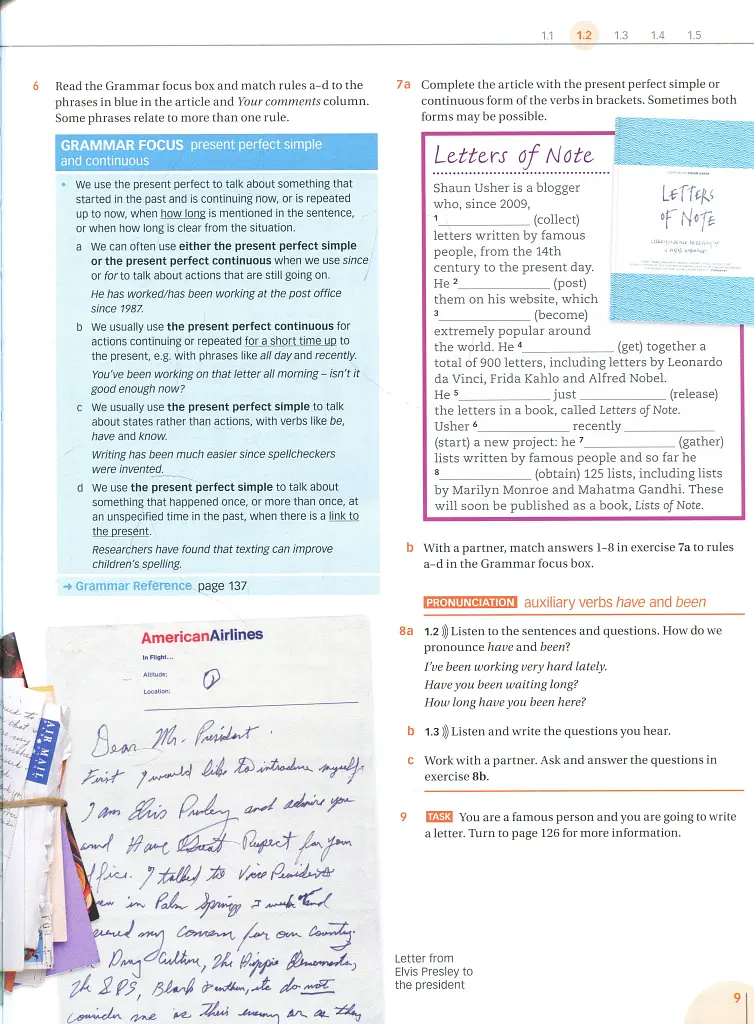 1.1 1.2 1.3 1.4 1.5
6 Read the Grammar focus box and match rules a–d to the
phrases in blue in the article and Your comments column.
Some phrases relate to more than one rule.
GRAMMAR FOCUS present perfect simple
and continuous
• We use the present perfect to talk about something that
started in the past and is continuing now, or is repeated
up to now, when how long is mentioned in the sentence,
or when how long is clear from the situation.
a We can often use either the present perfect simple
or the present perfect continuous when we use since
or for to talk about actions that are still going on.
He has worked/has been working at the post office
since 1987.
b We usually use the present perfect continuous for
actions continuing or repeated for a short time up to
the present, e.g. with phrases like all day and recently.
You've been working on that letter all morning – isn't it
good enough now?
c We usually use the present perfect simple to talk
about states rather than actions, with verbs like be,
have and know.
Writing has been much easier since spellcheckers
were invented.
d We use the present perfect simple to talk about
something that happened once, or more than once, at
an unspecified time in the past, when there is a link to
the present.
Researchers have found that texting can improve
children's spelling.
→ Grammar Reference page 137
AmericanAirlines
In Flight...
Altitude:
Location:
Dear Mr. President.
First I would like to introduce myself.
I am Elvis Presley and admire you
and Have Great Respect for your
office. I talked to Vice President
in Palm Springs 3 weeks and
my concern for our country.
Drug Culture, The Hippie Elements,
The SDS, Black Panthers, etc do not
consider me as their enemy or as they
AIR MAIL
7a Complete the article with the present perfect simple or
continuous form of the verbs in brackets. Sometimes both
forms may be possible.
Letters of Note
Shaun Usher is a blogger
who, since 2009,
1 ______________ (collect)
letters written by famous
people, from the 14th
century to the present day.
He 2 ______________ (post)
them on his website, which
3 ______________ (become)
extremely popular around
the world. He 4 ______________ (get) together a
total of 900 letters, including letters by Leonardo
da Vinci, Frida Kahlo and Alfred Nobel.
He 5 ______________ just ______________ (release)
the letters in a book, called Letters of Note.
Usher 6 ______________ recently ______________
(start) a new project: he 7 ______________ (gather)
lists written by famous people and so far he
8 ______________ (obtain) 125 lists, including lists
by Marilyn Monroe and Mahatma Gandhi. These
will soon be published as a book, Lists of Note.
LETTERS
OF NOTE
b With a partner, match answers 1–8 in exercise 7a to rules
a–d in the Grammar focus box.
PRONUNCIATION auxiliary verbs have and been
8a 1.2 Listen to the sentences and questions. How do we
pronounce have and been?
I've been working very hard lately.
Have you been waiting long?
How long have you been here?
b 1.3 Listen and write the questions you hear.
c Work with a partner. Ask and answer the questions in
exercise 8b.
9 TASK You are a famous person and you are going to write
a letter. Turn to page 126 for more information.
Letter from
Elvis Presley to
the president
9